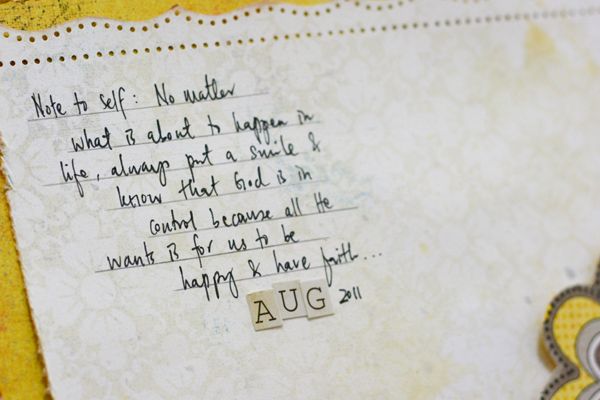 Note to self: No matter
what is about to happen in
life, always put a smile &
know that God is in
control because all He
wants is for us to be
happy & have faith...
AUG 2011